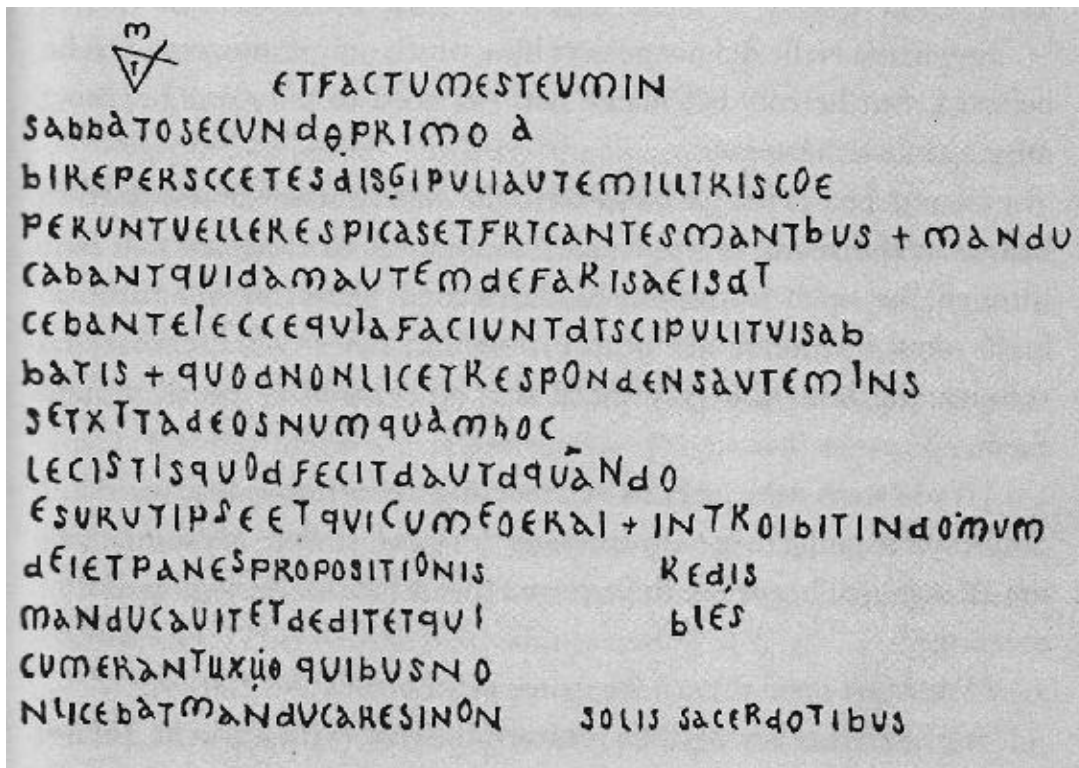 ETFACTUMESTEUMIN
SABBATOSECUNDOPRIMO A
BIREPERSCCETESDISGIPULIAUTEMILLIRISCOE
PERUNTVELLERESPICASETFRICANTESMANIBUS + MANDU
CABANTQUIDAMAUTEMDEFARISAEISDI
CEBANTEIECCEQVIAFACIUNTDISCIPULITVISAB
BATIS + QUODNONLICETRESPONDENSAVTEMINS
SETXITTADEOSNUMQUAMHOC
LECISTISQUODFECITDAUIDQUANDO
ESURUTIPSEETQVICUMEOERAI + INTROIBITINDOMVM
DEIETPANESPROPOSITIONIS REDIS
MANDUCAUITETDEDITETQUI BLES
CUMERANTUXUO QUIBUSNO
NLICEBATMANDVCARESINON SOLIS SACERDOTIBUS